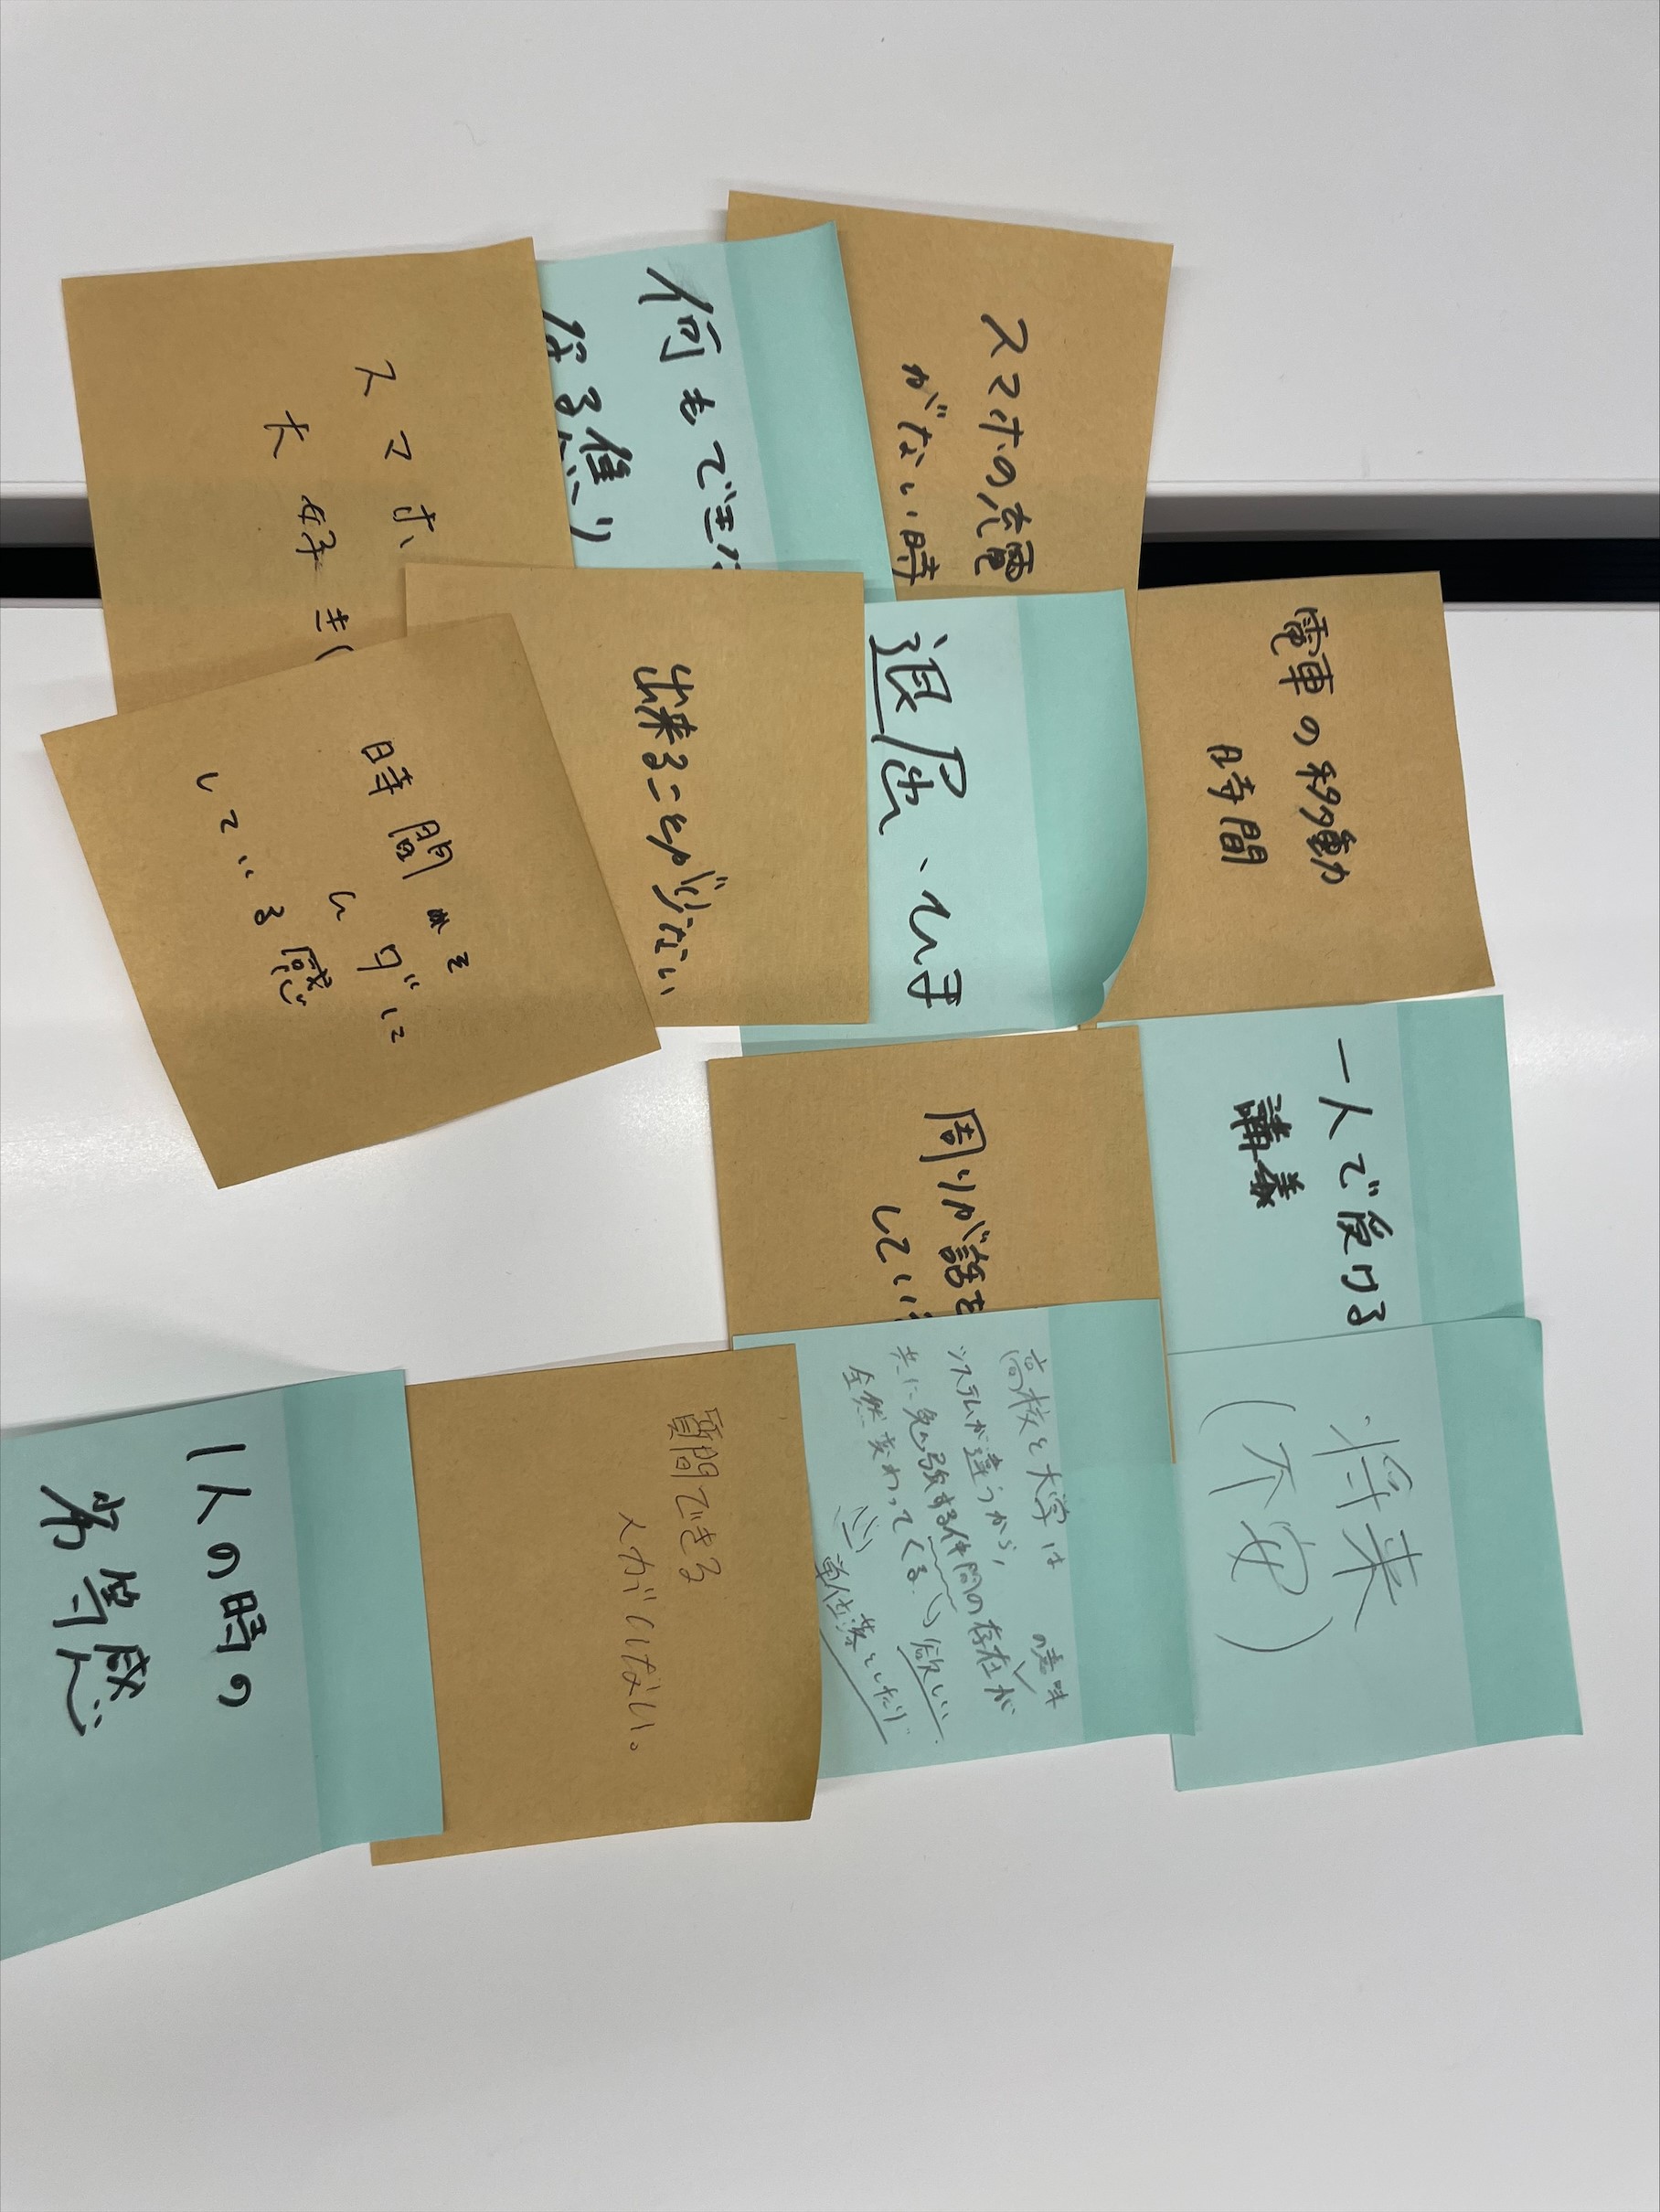 電車の移動
時間
一人で受ける
講義
将来
(不安)
スマホの充電
がない時
退屈、ひま
周りが話を
してい
高校と大学は
システムが違うから,
の意味
共に勉強する仲間の存在が
全然変わってくる.
欲しい.
単位落としたり
何もできな
なる焦り
出来ることが少ない
質問できる
人がいない。
スマホ
大好き
時間を
ムダに
している感
1人の時の
劣等感